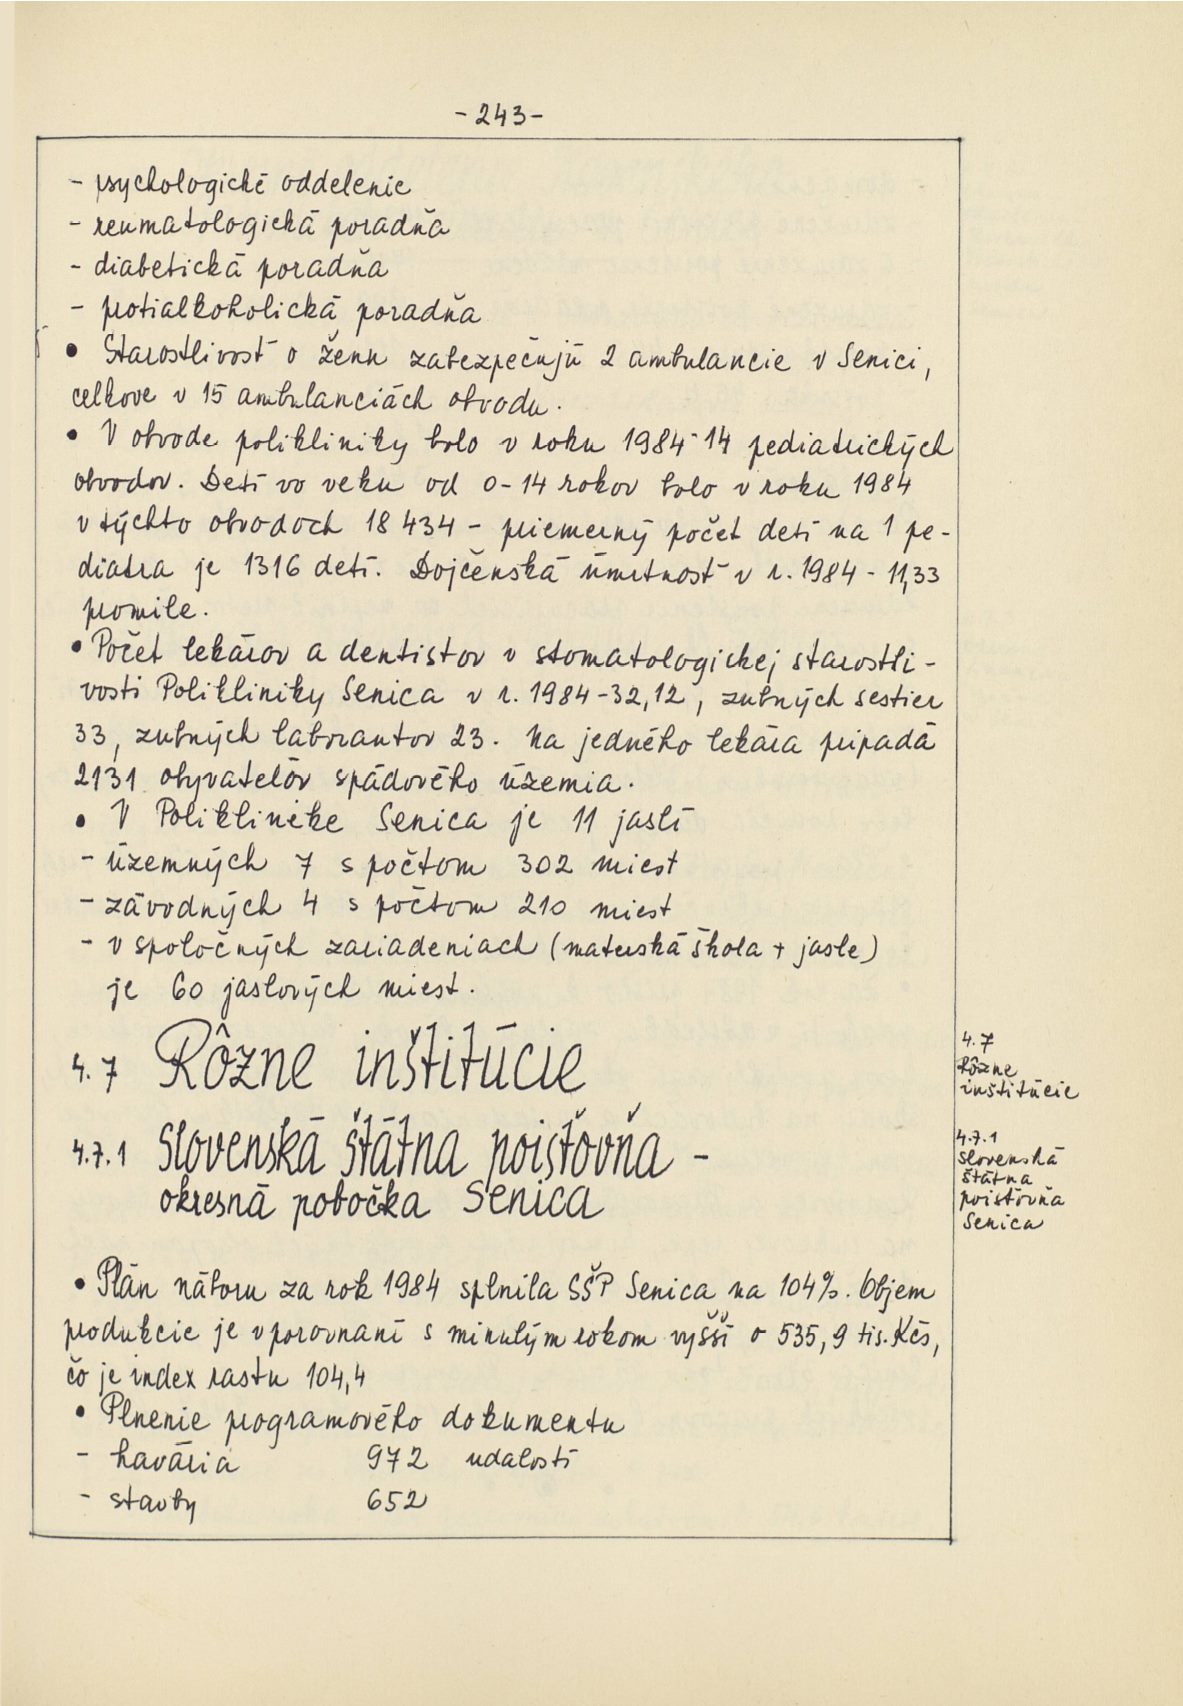 - 243 -
- psychologické oddelenie
- reumatologická poradňa
- diabetická poradňa
- protialkoholická poradňa
• Starostlivosť o ženu zabezpečujú 2 ambulancie v Senici,
celkove v 15 ambulanciách obvodu.
• V obvode polikliniky bolo v roku 1984 - 14 pediatrických
obvodov. Detí vo veku od 0-14 rokov bolo v roku 1984
v týchto obvodoch 18 434 - priemerný počet detí na 1 pe-
diatra je 1316 detí. Dojčenská úmrtnosť v r. 1984 - 11,33
promile.
• Počet lekárov a dentistov v stomatologickej starostli-
vosti Polikliniky Senica v r. 1984 - 32,12, zubných sestier
33, zubných laborantov 23. Na jedného lekára pripadá
2131 obyvateľov spádového územia.
• V Poliklinike Senica je 11 jaslí
- územných 7 s počtom 302 miest
- závodných 4 s počtom 210 miest
- v spoločných zariadeniach (materská škola + jasle)
je 60 jasľových miest.
4.7 Rôzne inštitúcie
4.7.1 Slovenská štátna poisťovňa -
okresná pobočka Senica
• Plán náboru za rok 1984 splnila SŠP Senica na 104%. Objem
produkcie je v porovnaní s minulým rokom vyšší o 535,9 tis. Kčs,
čo je index rastu 104,4
• Plnenie programového dokumentu
- havária 972 udalostí
- stavby 652
4.7
Rôzne
inštitúcie
4.7.1
Slovenská
štátna
poisťovňa
Senica